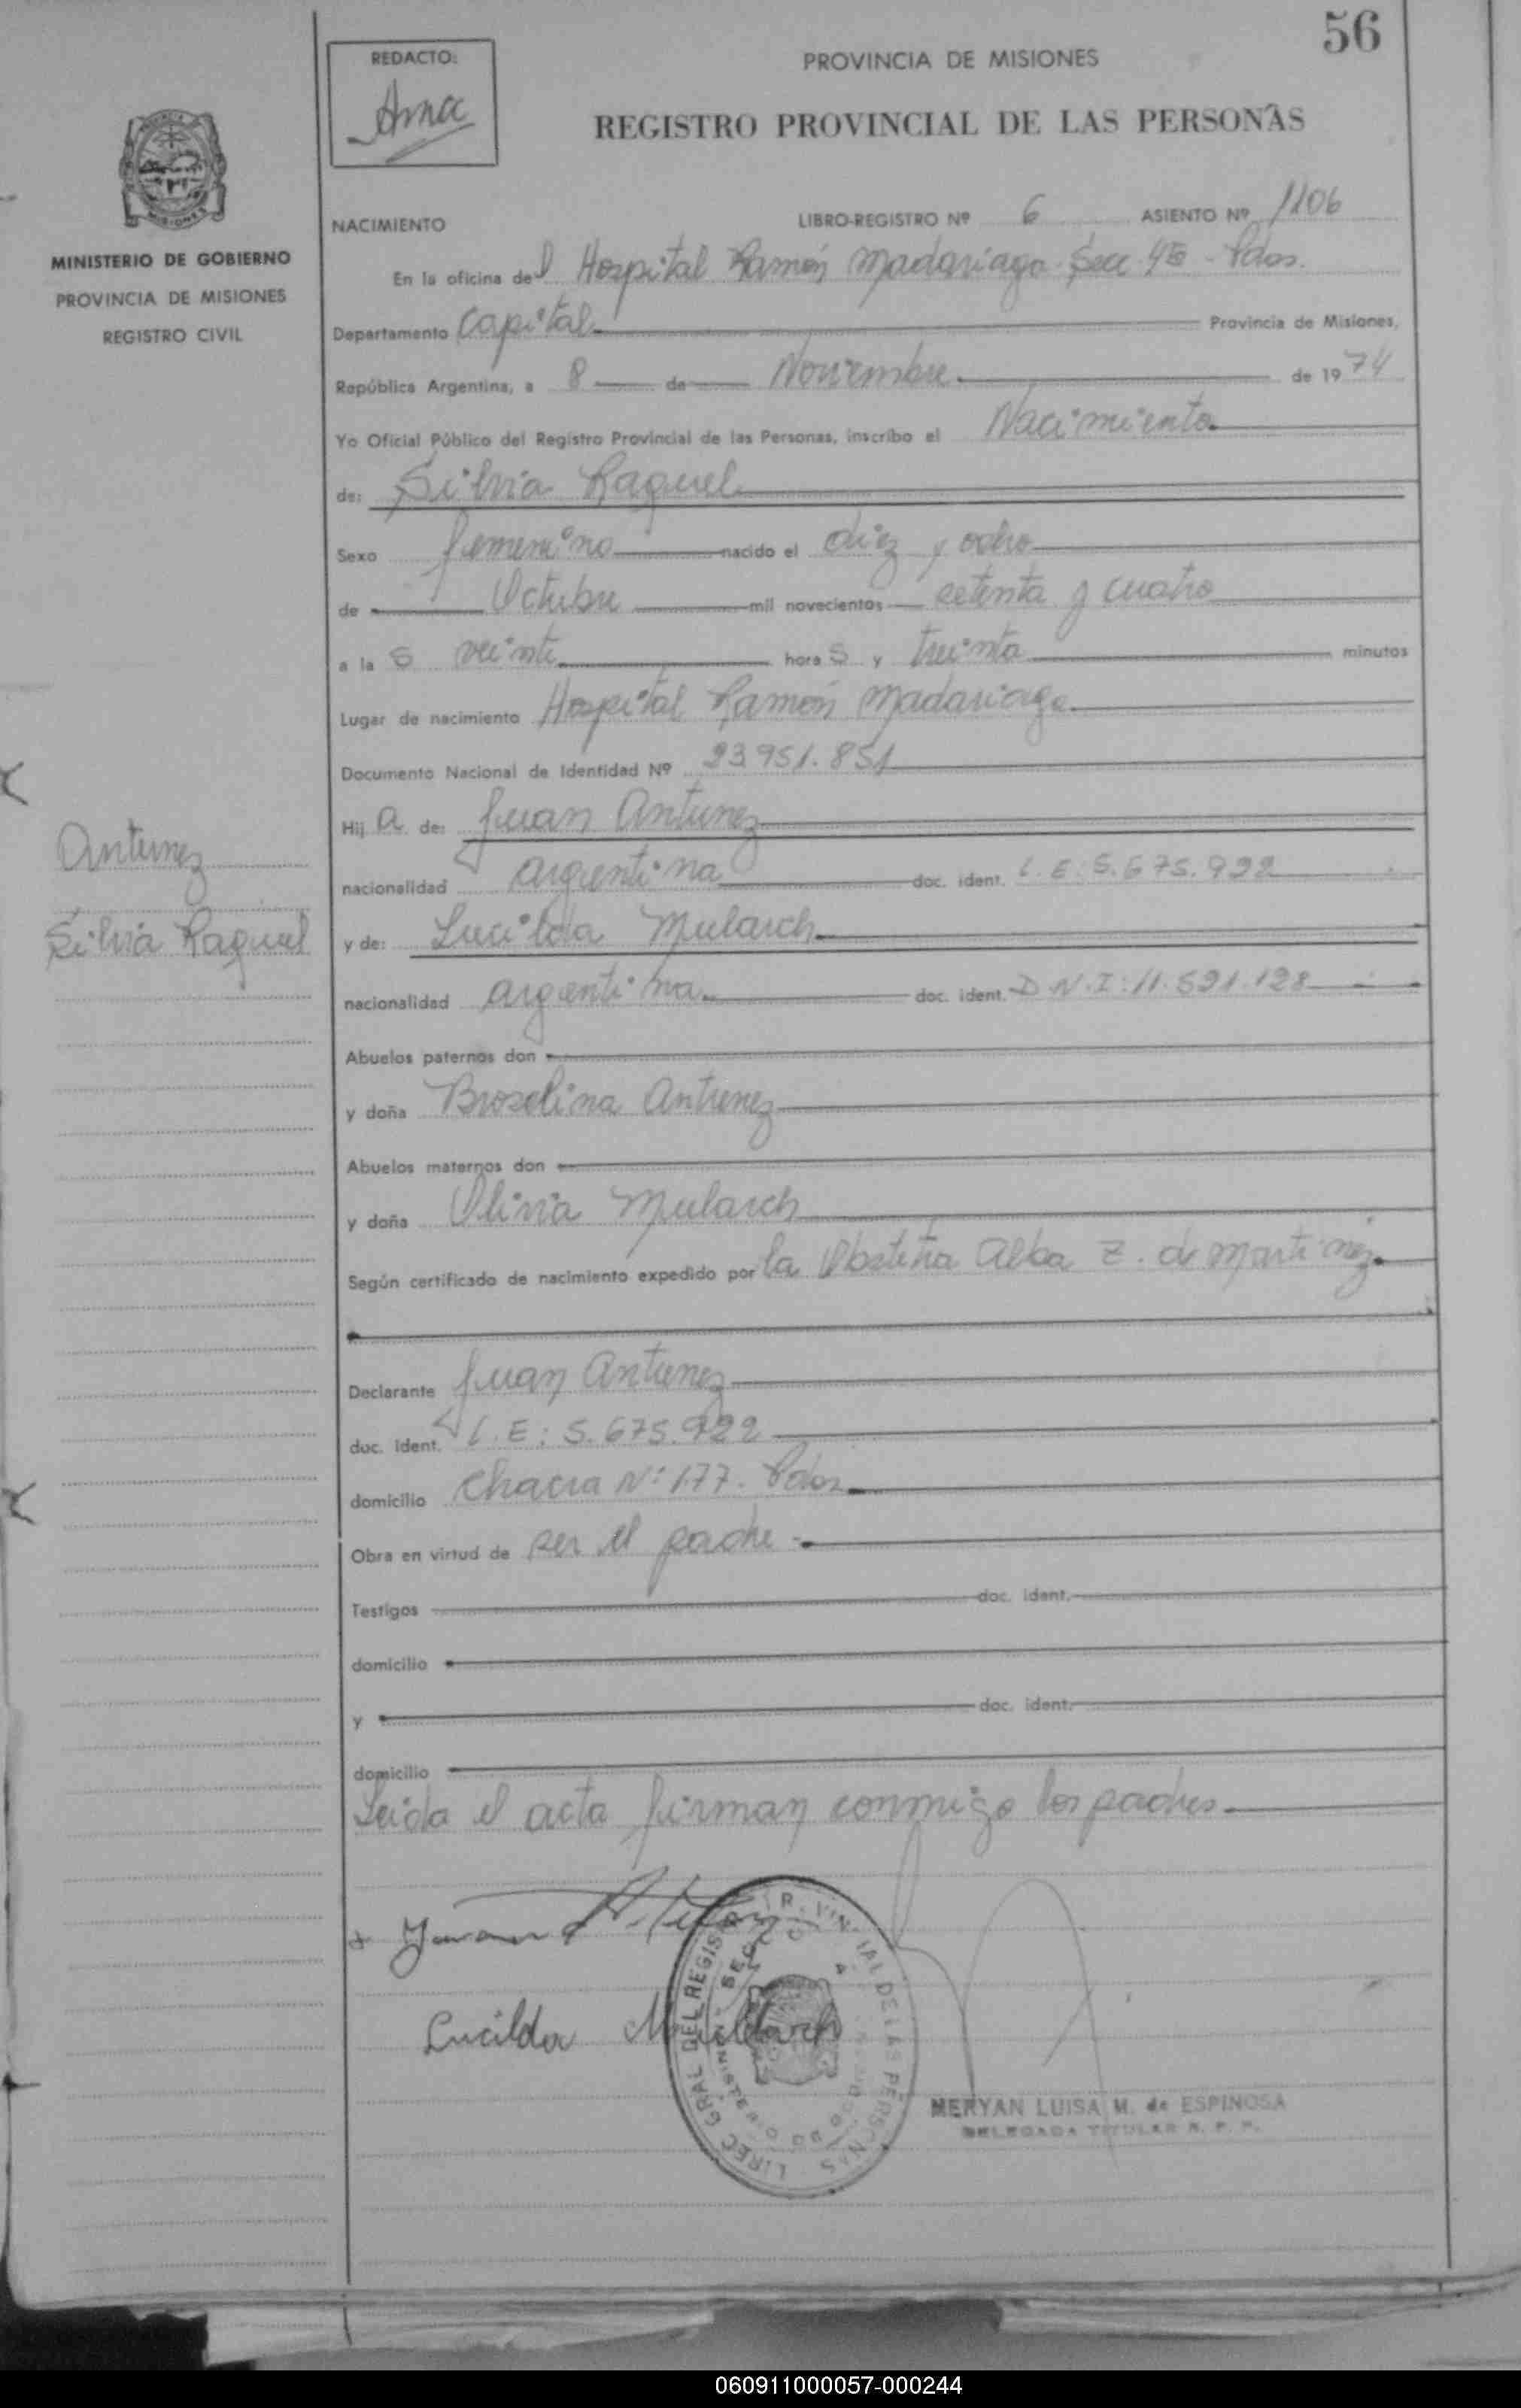 56
REDACTO:
PROVINCIA DE MISIONES
REGISTRO PROVINCIAL DE LAS PERSONAS
MINISTERIO DE GOBIERNO
PROVINCIA DE MISIONES
REGISTRO CIVIL
NACIMIENTO LIBRO-REGISTRO Nº 6 ASIENTO Nº 1106
En la oficina del Hospital Ramón Madariaga Secc. - Pdas.
Departamento Capital Provincia de Misiones,
República Argentina, a 8 de Noviembre de 1974
Yo Oficial Público del Registro Provincial de las Personas, inscribo el Nacimiento
de: Silvia Raquel
Sexo femenino nacido el diez y ocho
de Octubre mil novecientos setenta y cuatro
a las veinte horas y treinta minutos
Lugar de nacimiento Hospital Ramón Madariaga
Documento Nacional de Identidad Nº 23.951.851
Hija de: Juan Antunez
nacionalidad argentina doc. ident. L.E: 5.675.922
y de: Lucilda Mularch
nacionalidad argentina doc. ident. D.N.I: 11.521.128
Abuelos paternos don
y doña Broselina Antunez
Abuelos maternos don
y doña Olivia Mularch
Según certificado de nacimiento expedido por la Obstetra Alba Z. de Martinez
Declarante Juan Antunez
doc. ident. L.E: 5.675.922
domicilio Chacra Nº 177. Pdas
Obra en virtud de ser el padre
Testigos doc. ident.
domicilio
y doc. ident.
domicilio
Leida el acta firman conmigo los padres
Antunez
Silvia Raquel
Lucilda Mularch
MERYAN LUISA M. de ESPINOSA
DELEGADA TITULAR R. P. P.
060911000057-000244